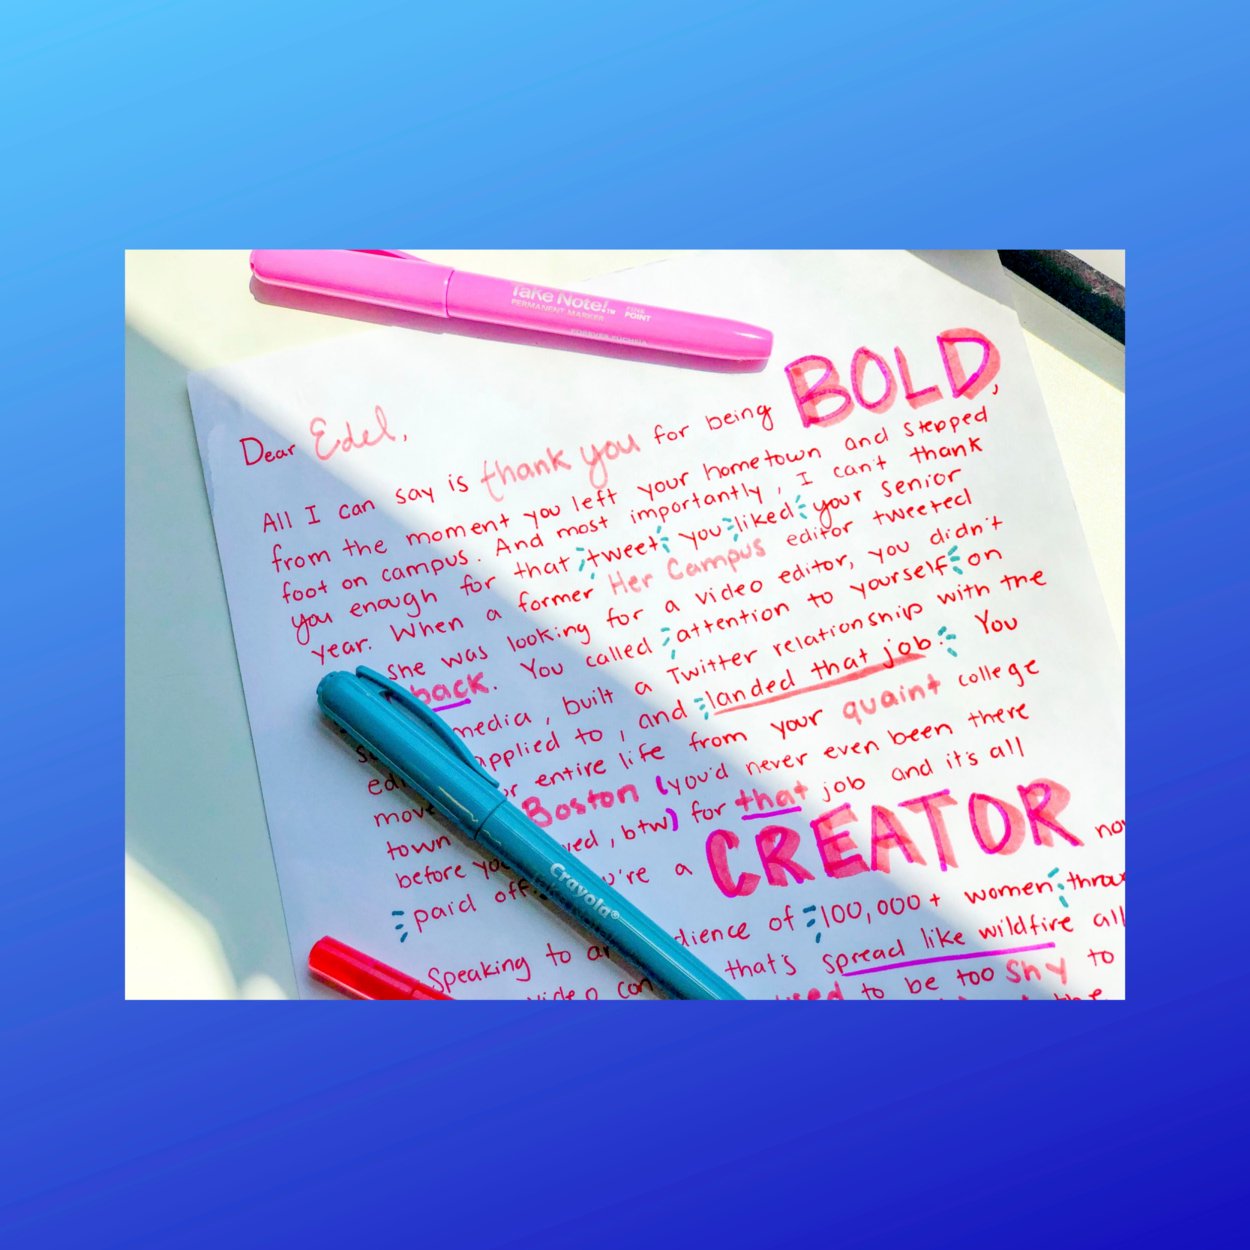 Take Note!™
PERMANENT MARKER
FINE POINT
FOREVER FUCHSIA
Dear Edel,
All I can say is thank you for being BOLD,
from the moment you left your hometown and stepped
foot on campus. And most importantly, I can't thank
you enough for that tweet you liked your senior
year. When a former Her Campus editor tweeted
she was looking for a video editor, you didn't
back. You called attention to yourself on
media, built a Twitter relationship with the
applied to, and landed that job. You
entire life from your quaint college
town Boston (you'd never even been there
before btw) for that job and it's all
paid off. a CREATOR
Speaking to of 100,000+ women
that's spread like wildfire
to be too shy to
Crayola®